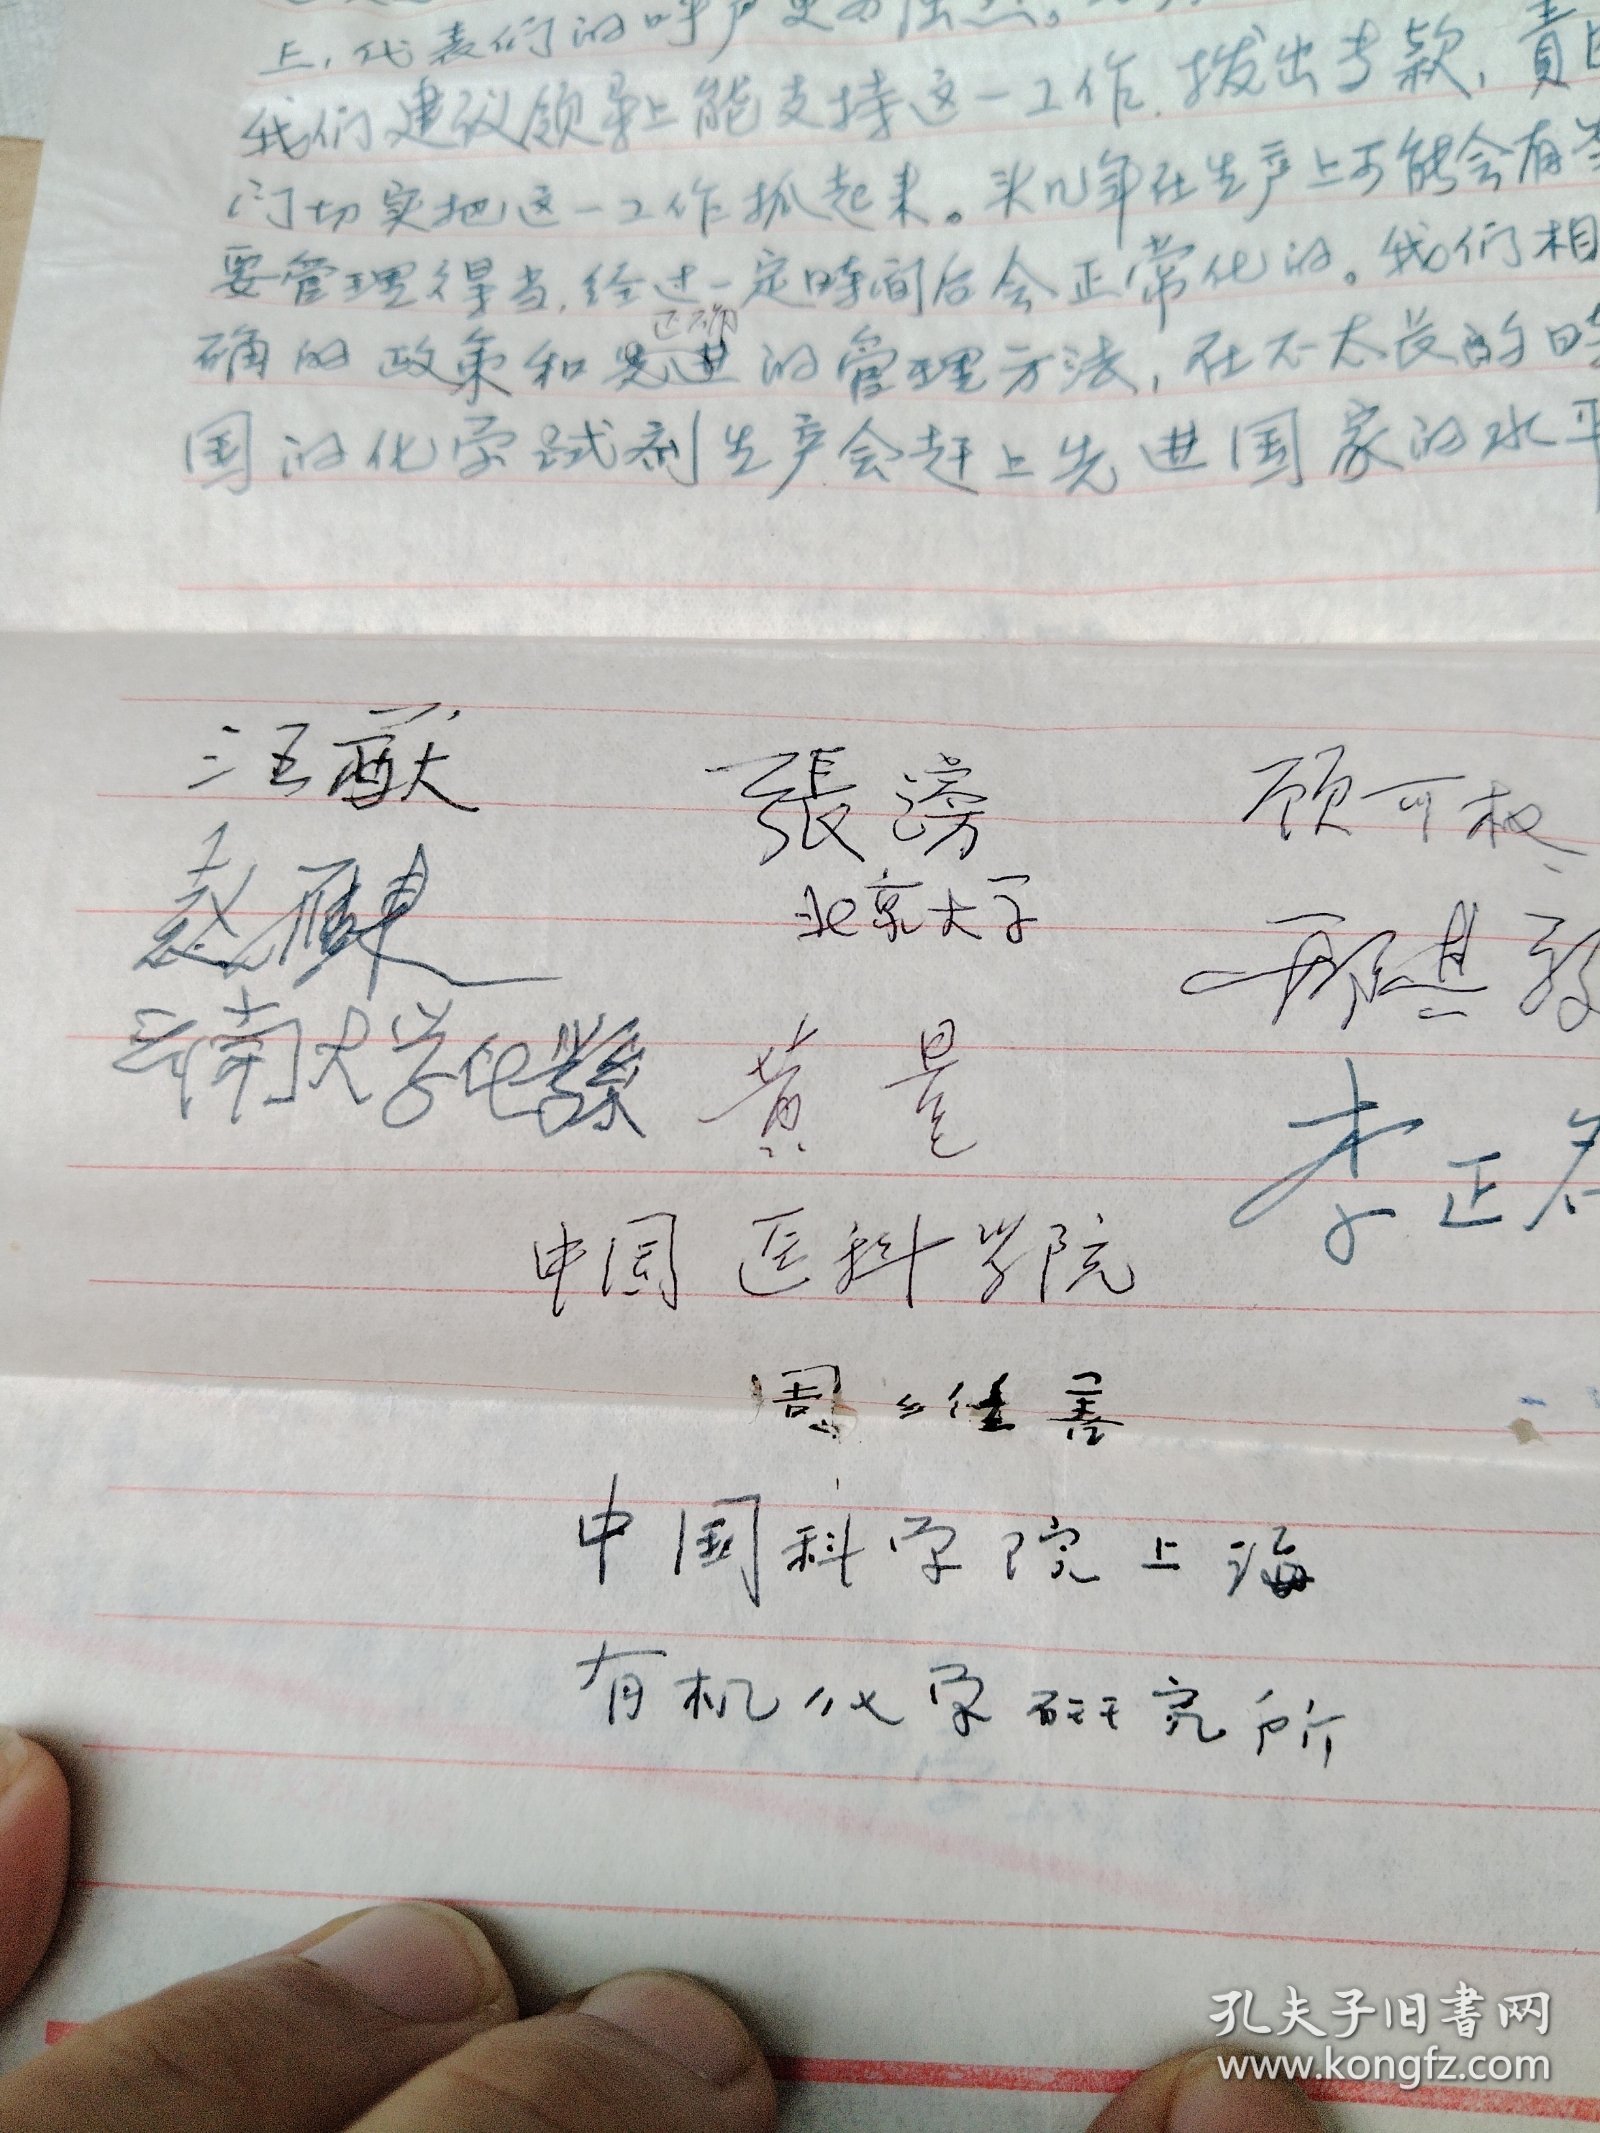 上，代表们的呼声更为强烈。
我们建议领导上能支持这一工作，拨出专款，责
门切实把这一工作抓起来。头几年在生产上可能会有
要管理得当，经过一定時间后会正常化的。我们相
正确
确的政策和先进的管理方法，在不太长的時
国的化学试剂生产会赶上先进国家的水平
汪猷
張滂
顾可权
赵雁来
北京大学
邢其毅
云南大学化学系
黄量
李正
中国医科学院
周维善
中国科学院上海
有机化学研究所
孔夫子旧书网
www.kongfz.com